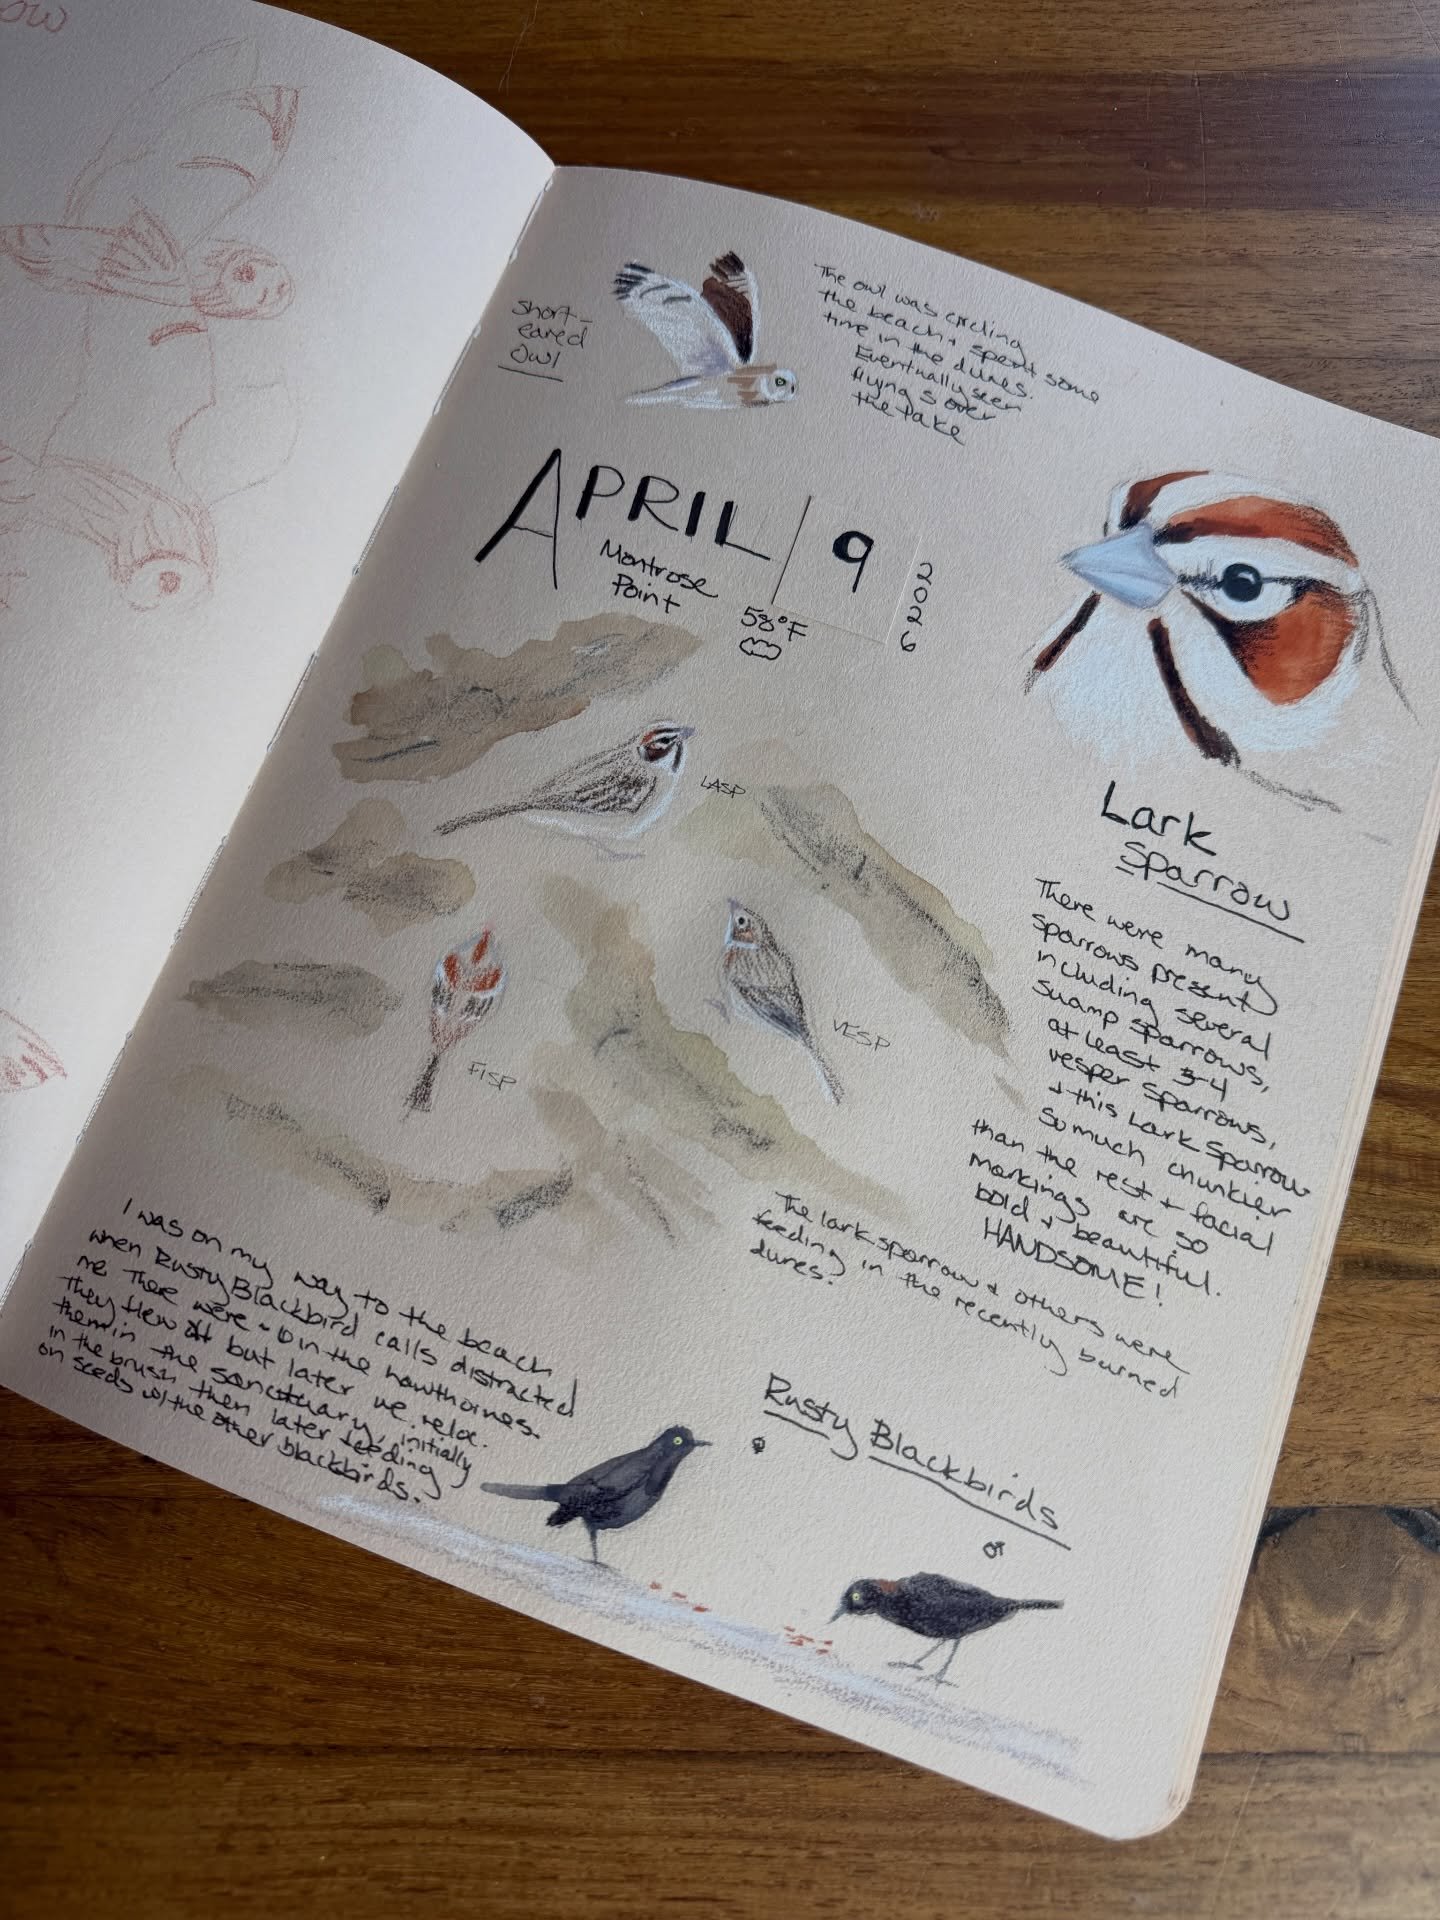 ow
short-
eared
Owl
The owl was circling
the beach + spent some
time in the dunes.
Eventually seen
flying S over
the lake
APRIL 9
2026
Montrose
Point
58°F
LASP
FISP
VESP
Lark
Sparrow
There were many
sparrows present
including several
swamp sparrows,
at least 3-4
vesper sparrows,
+ this Lark Sparrow
so much chunkier
than the rest + facial
markings are so
bold + beautiful.
HANDSOME!
The lark sparrow + others were
feeding in the recently burned
dunes.
I was on my way to the beach
when Rusty Blackbird calls distracted
me There were ~10 in the hawthornes.
They flew off but later we relo.
them in the sanctuary, initially
in the brush then later feeding
on seeds w/ the other blackbirds.
Rusty Blackbirds
♀
♂